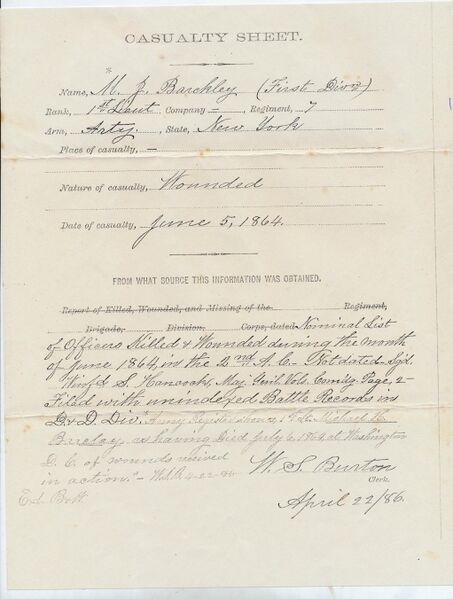 CASUALTY SHEET.
*
Name, M. J. Barckley (First Divn)
Rank, 1st Lieut Company – Regiment, 7
Arm, Arty. State, New York
Place of casualty, –
Nature of casualty, Wounded
Date of casualty, June 5, 1864.
FROM WHAT SOURCE THIS INFORMATION WAS OBTAINED.
Report of Killed, Wounded, and Missing of the Regiment,
Brigade, Division, Corps, dated Nominal List
of Officers Killed & Wounded during the month
of June 1864, in the 2nd A. C. – Not dated – Sgd.
Winfd S. Hancock, Maj. Genl. Vols. Comdg. Page, 2 –
Filed with unindexed Battle Records in
D. Div. "Army Register shows, 1st Lt. Michael H.
Barclay, as having died July 6, 1864 at Washington
D. C. of wounds received
in action." – 4-22-86
W. S. Burton
Clerk.
April 22/86.